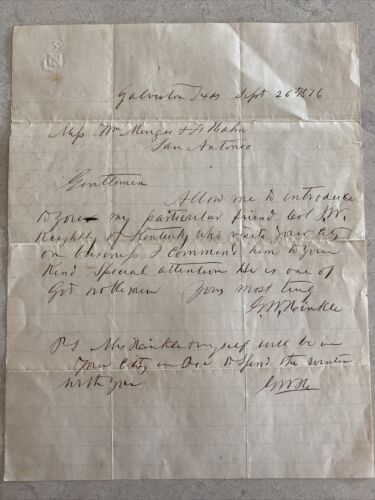 Galveston Texas Sept 26th 1876
Mess Wm Menger & F Hahn
San Antonio
Gentlemen
Allow me to introduce
to you my particular friend Col J.W.
of Kentucky who visits your city
on business I commend him to your
Kind special attention He is one of
God noblemen Yours most truly
G.W. Hinkle
PS Mrs Hinkle & myself will be in
Your City in Dec to spend the winter
with you GWH